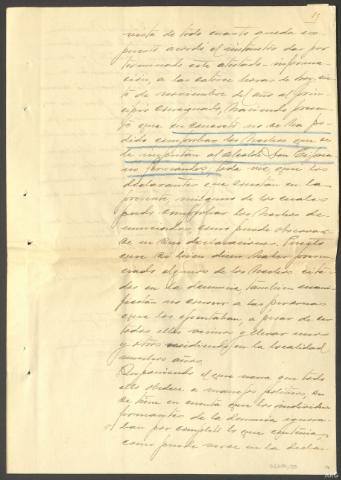 vista de todo cuanto queda ex-
puesto acordó el instructor dar por
terminado este atestado-informa-
ción, a las catorce horas de hoy,
de noviembre del año al prin-
cipio consignado, haciendo presen-
te que en concreto no se ha po-
dido comprobar los hechos que se
le imputan al alcalde Don
Fernandez, toda vez que los
declarantes que constan en la
presente, ninguno de los cuales
pudo comprobar los hechos de-
nunciados, como puede observar-
se en sus declaraciones. Puesto
que si bien dicen haber presen-
ciado algunos de los hechos cita-
dos en la denuncia, tambien mani-
fiestan no conocer a las personas
que los ejecutaban, a pesar de ser
todos ellos vecinos y llevar unos
y otros residiendo en la localidad
muchos años.
el que narra que todo
ello obedece a manejos politicos, si
se tiene en cuenta que los individuos
firmantes de la denuncia ignora-
ban por completo lo que contenia,
como puede verse en la declar-